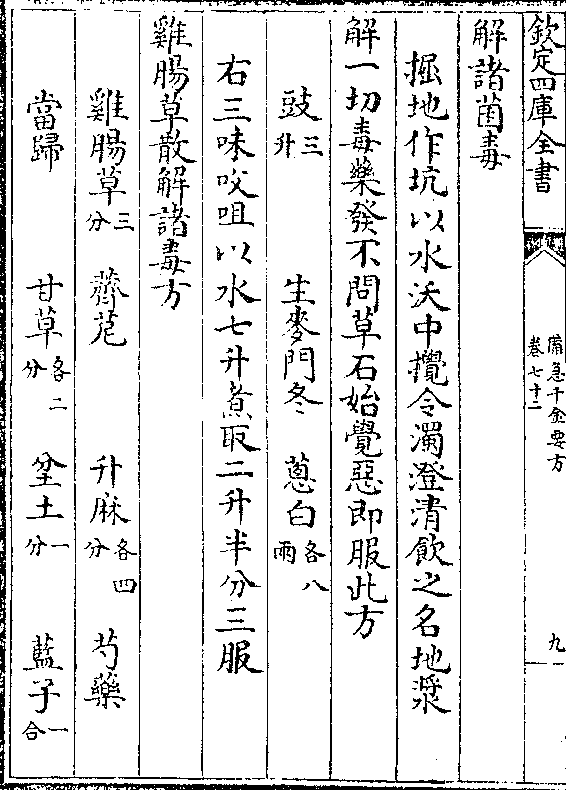 欽定四庫全書
備急千金要方
卷七十二
九
解諸菌毒
掘地作坑以水沃中攪令濁澄清飲之名地漿
解一切毒藥發不問草石始覺惡即服此方
豉三升 生麥門冬 蔥白各八兩
右三味㕮咀以水七升煮取二升半分三服
雞腸草散解諸毒方
雞腸草三分 薺苨 升麻各四分 芍藥
當歸 甘草各二分 坌土一分 藍子一合